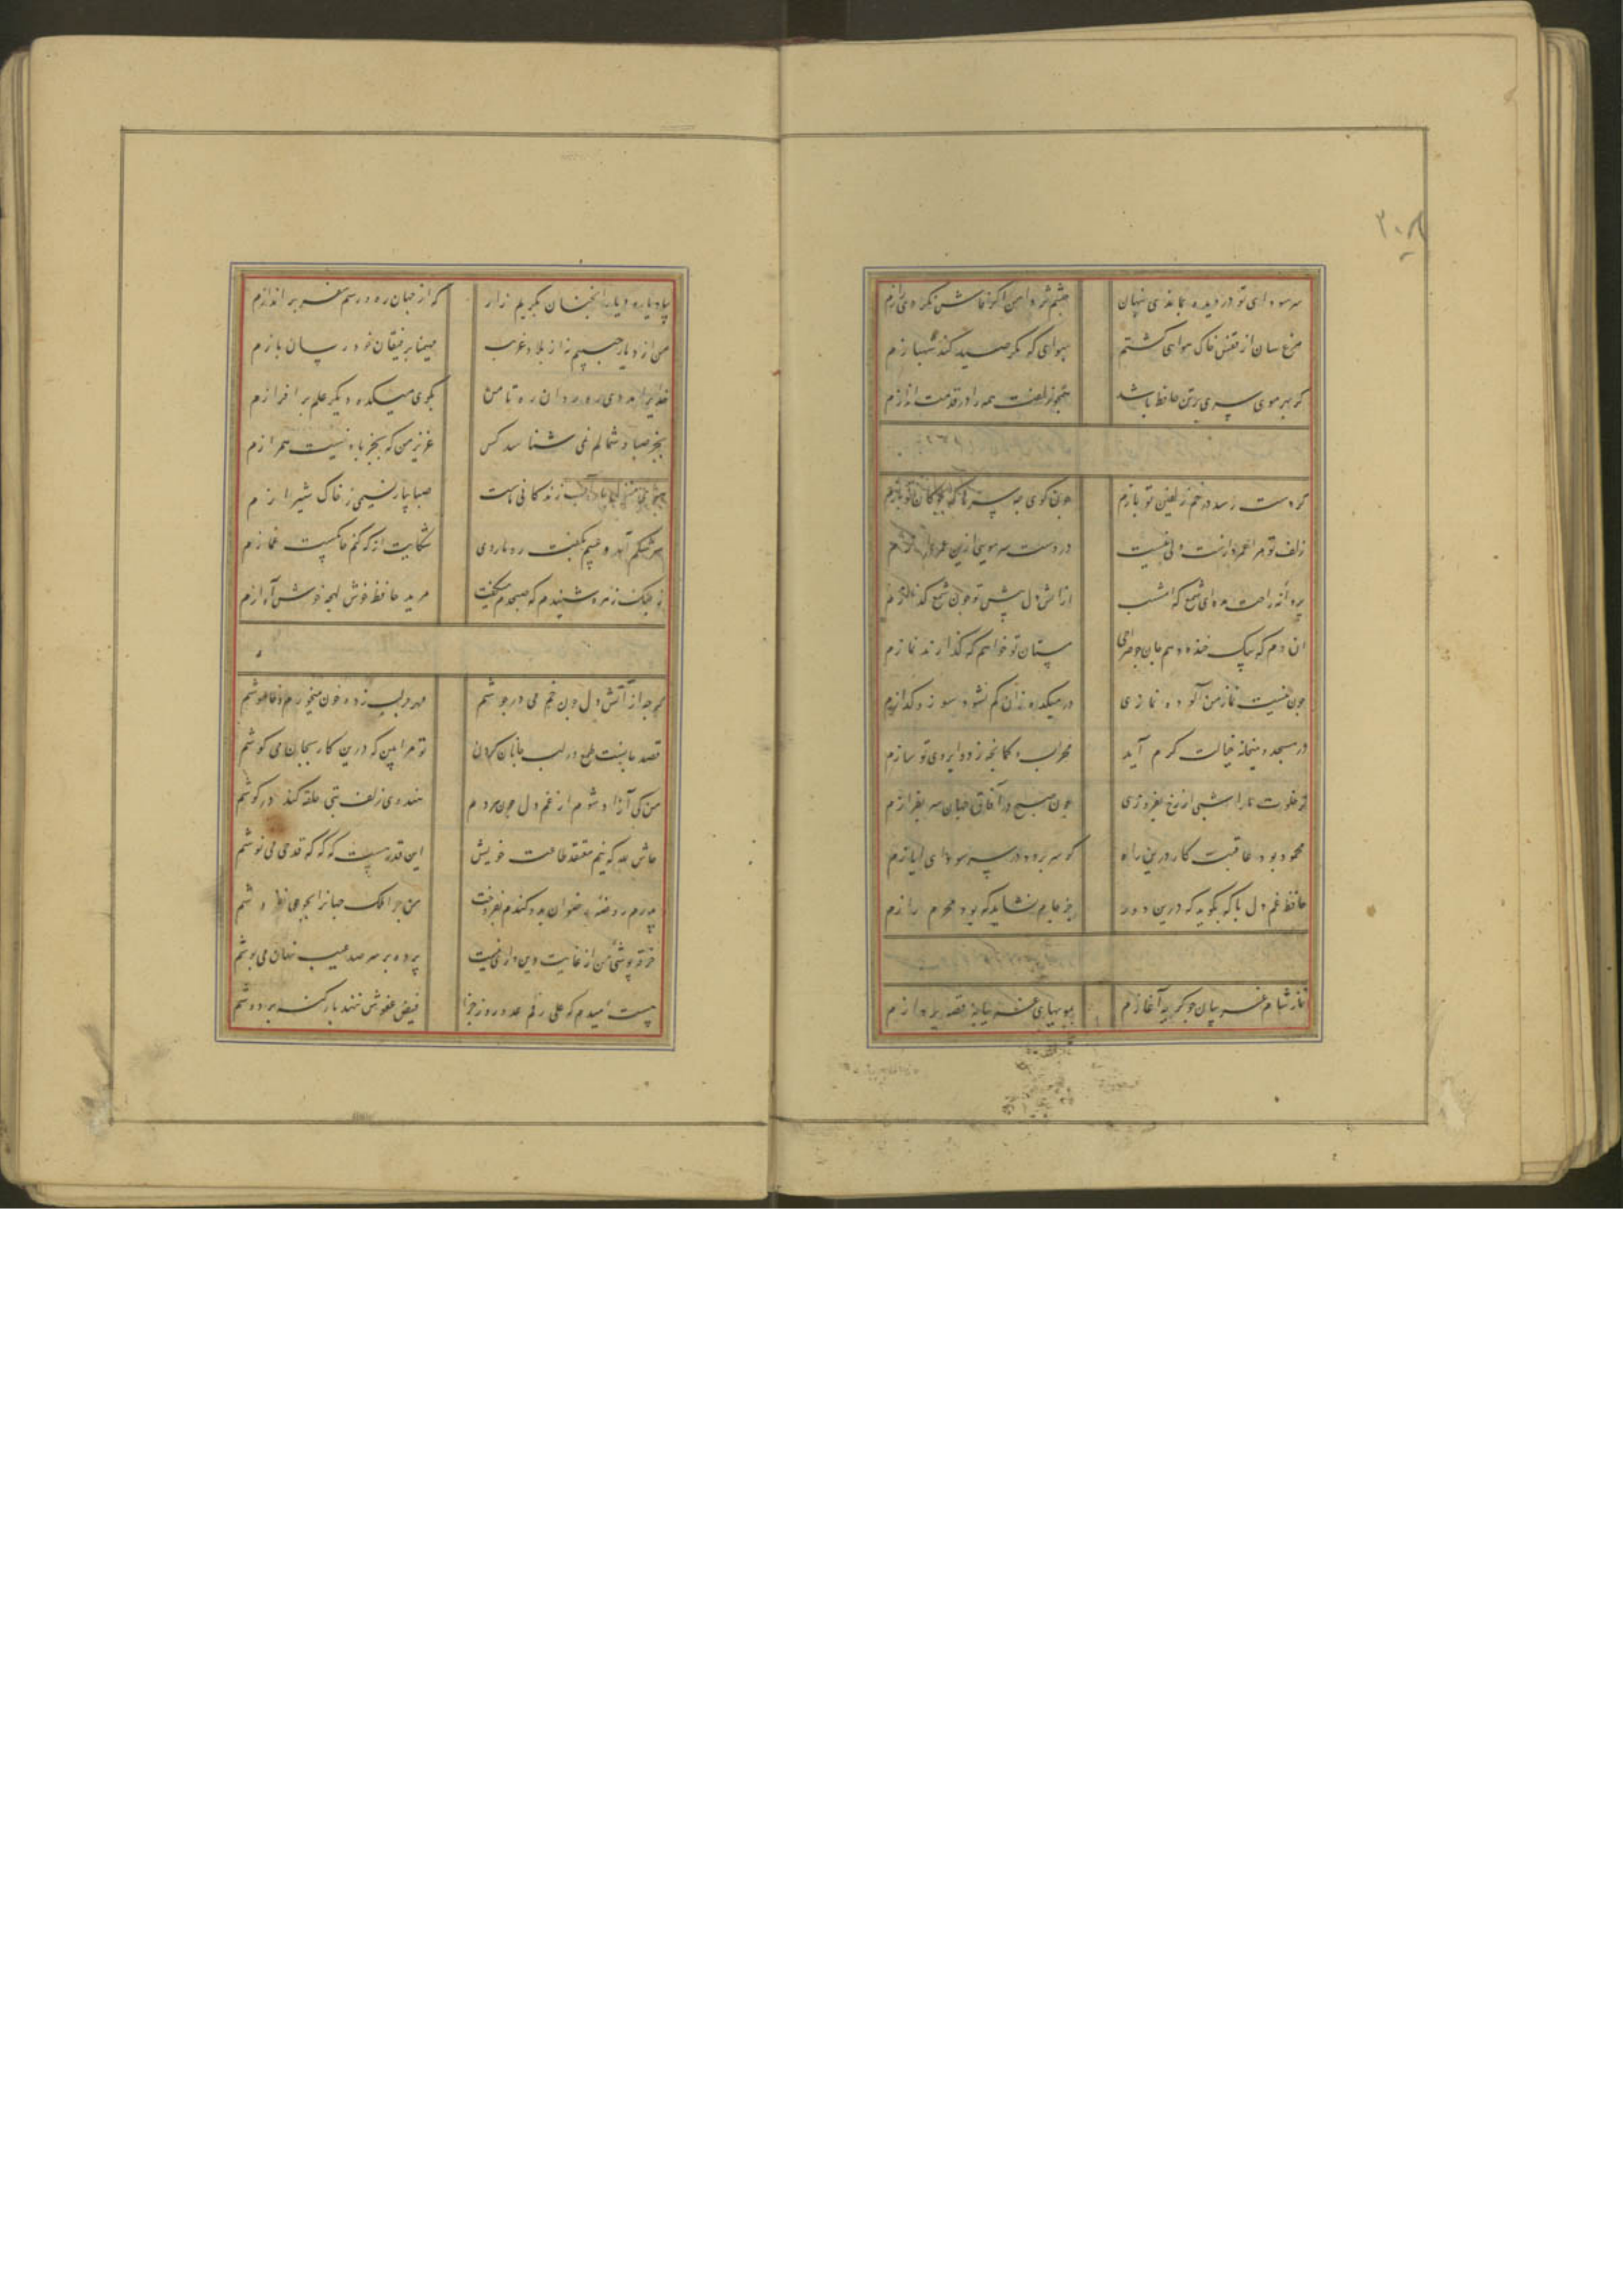 ۳۰۸
سر سودای تو در دیده بماندی پنهان چشم تر دامن اگر فاش نکردی رازم
مرغ سان از قفس خاک هوایی گشتم بهوای که مگر صید کند شهبازم
گر بهر موی سری بر تن حافظ باشد همچو زلفت همه را در قدمت اندازم
گر دست رسد در خم زلفین تو بازم چون گوی چه سرها که بچوگان تو بازم
زلف تو مرا عمر درازست ولی نیست در دست سر مویی ازین عمر درازم
پروانه راحت بده ای شمع که امشب از آتش دل پیش تو چون شمع گدازم
آن دم که بیک خنده دهم جان چو صراحی مستان تو خواهم که گذارند نمازم
چون نیست نماز من آلوده نمازی در میکده زان کم نشود سوز و گدازم
در مسجد و میخانه خیالت گرم آید محراب و کمانچه ز دو ابروی تو سازم
گر خلوت ما را شبی از رخ بفروزی چون صبح در آفاق جهان سر بفرازم
محمود بود عاقبت کار درین راه گر سر برود در سر سودای ایازم
حافظ غم دل با که بگوید که درین دور جز جام نشاید که بود محرم رازم
نماز شام غریبان چو گریه آغازم بمویهای غریبانه قصه پردازم
بیاد یار و دیار آنچنان بگریم زار که از جهان ره و رسم سفر براندازم
من از دیار حبیبم نه از بلاد غریب مهیمنا برفیقان خود رسان بازم
خدایرا مددی ره روان ره تا من بکوی میکده دیگر علم برافرازم
بجز صبا و شمالم نمی شناسد کس عزیز من که بجز باد نیست همرازم
هوای منزل یار آب زندگانی ماست صبا بیار نسیمی ز خاک شیرازم
سرشکم آمد و عیبم بگفت رو باروی شکایت از که کنم خانگیست غمازم
ز چنگ زهره شنیدم که صبحدم میگفت مرید حافظ خوش لهجه خوش آوازم
گرچه از آتش دل چون خم می در جوشم مهر بر لب زده خون میخورم و خاموشم
قصد جانست طمع در لب جانان کردن تو مرا بین که درین کار بجان می کوشم
من کی آزاد شوم از غم دل چون هر دم هندوی زلف بتی حلقه کند در گوشم
حاش لله که نیم معتقد طاعت خویش این قدر هست که گه گه قدحی می نوشم
پدرم روضه رضوان بدو گندم بفروخت من چرا ملک جهانرا بجوی نفروشم
خرقه پوشی من از غایت دین داری نیست پرده بر سر صد عیب نهان می پوشم
هست امیدم که علی رغم عدو روز جزا فیض عفوش ننهد بار گنه بر دوشم